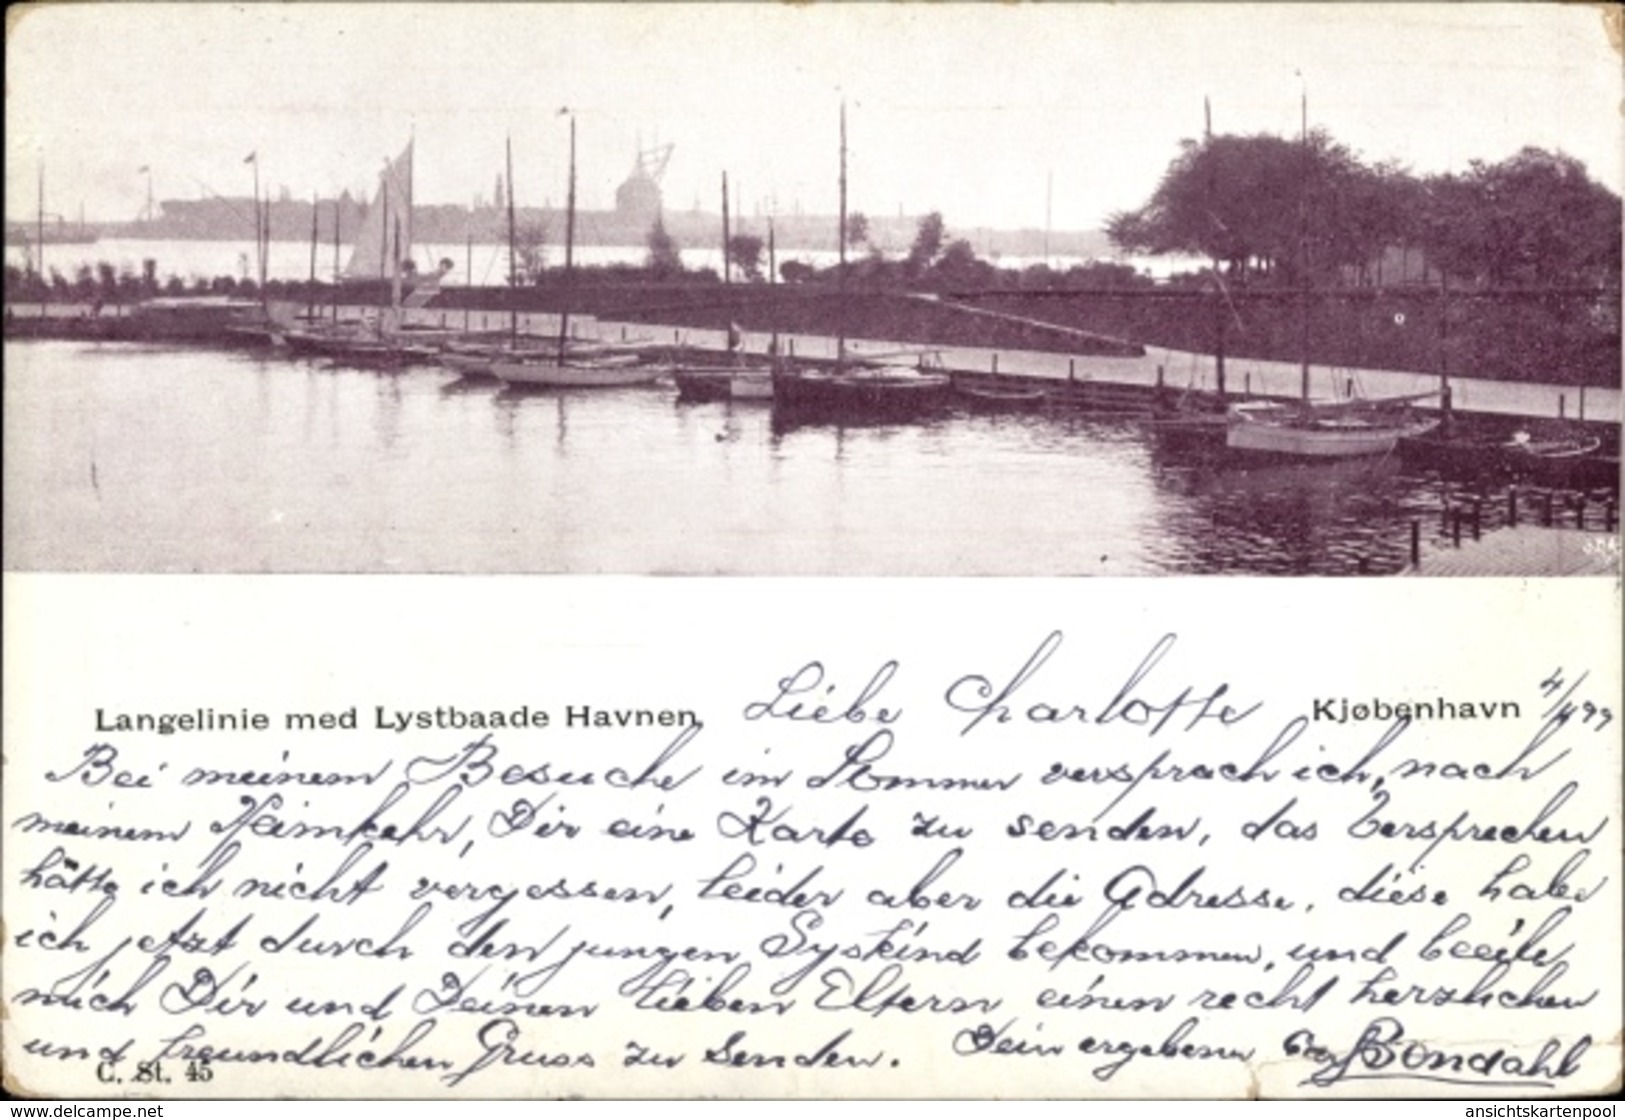 Langelinie med Lystbaade Havnen, Liebe Charlotte Kjøbenhavn 4/ 99
Bei meinem Besuche im Sommer versprach ich, nach
meinem Heimkehr, Dir eine Karte zu senden, das Versprechen
hätte ich nicht vergessen, leider aber die Adresse. diese habe
ich jetzt durch den jungen Syskind bekommen, und beeile
mich Dir und Deinen lieben Eltern einen recht herzlichen
und freundlichen Gruss zu senden. Dein ergebener Bondahl
C. St. 45
www.delcampe.net
ansichtskartenpool